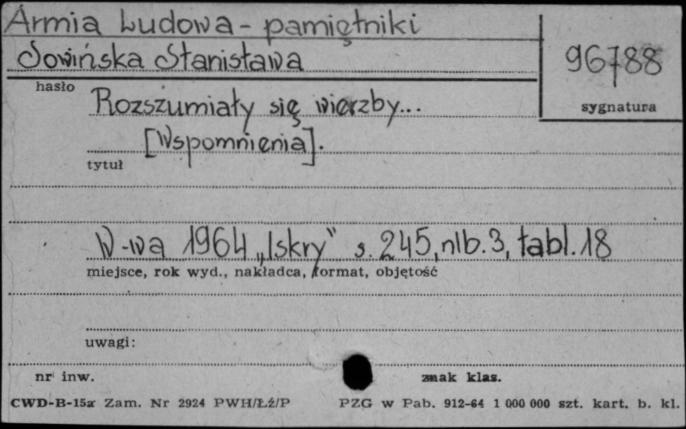 Armia Ludowa - pamiętniki
Sowińska Stanisława
96788
hasło
sygnatura
Rozszumiały się wierzby...
[Wspomnienia].
tytuł
W-wa 1964 „Iskry" s. 245, nlb. 3, tabl. 18
miejsce, rok wyd., nakładca, format, objętość
uwagi:
nr inw.
znak klas.
CWD-B-15a Zam. Nr 2924 PWH/Łż/P PZG w Pab. 912-64 1 000 000 szt. kart. b. kl.